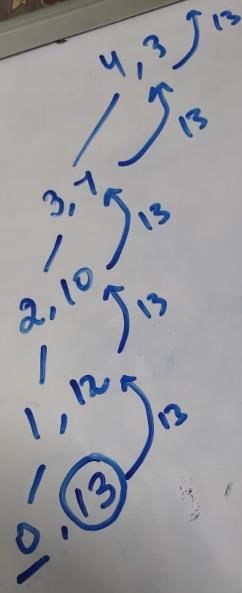 4,3 13
13
3,7
13
2,10
13
1,12
13
0,13